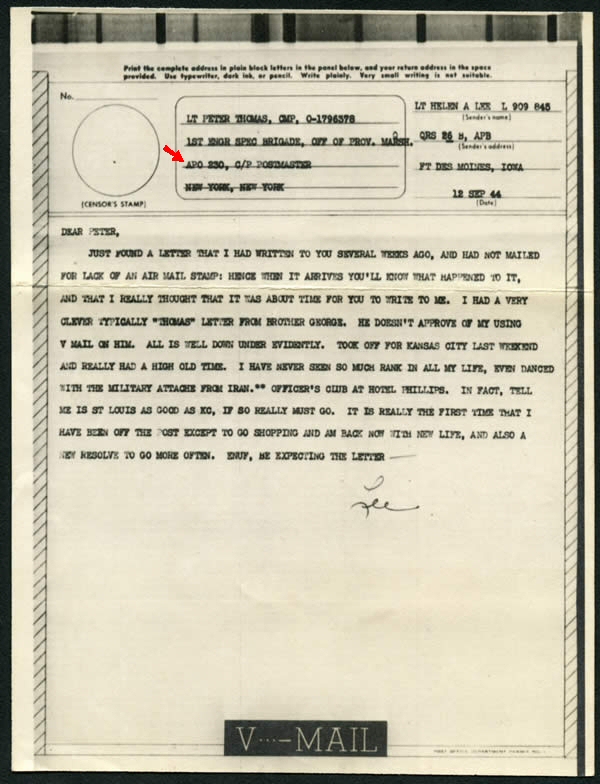 Print the complete address in plain block letters in the panel below, and your return address in the space
provided. Use typewriter, dark ink, or pencil. Write plainly. Very small writing is not suitable.
No.
(CENSOR'S STAMP)
LT PETER THOMAS, CMP, O-1796378
1ST ENGR SPEC BRIGADE, OFF OF PROV. MARSH.
APO 230, C/P POSTMASTER
NEW YORK, NEW YORK
LT HELEN A LEE L 909 845
(Sender's name)
QRS 26 B, APB
(Sender's address)
FT DES MOINES, IOWA
12 SEP 44
(Date)
DEAR PETER,
JUST FOUND A LETTER THAT I HAD WRITTEN TO YOU SEVERAL WEEKS AGO, AND HAD NOT MAILED
FOR LACK OF AN AIR MAIL STAMP: HENCE WHEN IT ARRIVES YOU'LL KNOW WHAT HAPPENED TO IT,
AND THAT I REALLY THOUGHT THAT IT WAS ABOUT TIME FOR YOU TO WRITE TO ME. I HAD A VERY
CLEVER TYPICALLY "THOMAS" LETTER FROM BROTHER GEORGE. HE DOESN'T APPROVE OF MY USING
V MAIL ON HIM. ALL IS WELL DOWN UNDER EVIDENTLY. TOOK OFF FOR KANSAS CITY LAST WEEKEND
AND REALLY HAD A HIGH OLD TIME. I HAVE NEVER SEEN SO MUCH RANK IN ALL MY LIFE, EVEN DANCED
WITH THE MILITARY ATTACHE FROM IRAN.** OFFICER'S CLUB AT HOTEL PHILLIPS. IN FACT, TELL
ME IS ST LOUIS AS GOOD AS KC, IF SO REALLY MUST GO. IT IS REALLY THE FIRST TIME THAT I
HAVE BEEN OFF THE POST EXCEPT TO GO SHOPPING AND AM BACK NOW WITH NEW LIFE, AND ALSO A
NEW RESOLVE TO GO MORE OFTEN. ENUF, BE EXPECTING THE LETTER —
Lee
V···—MAIL